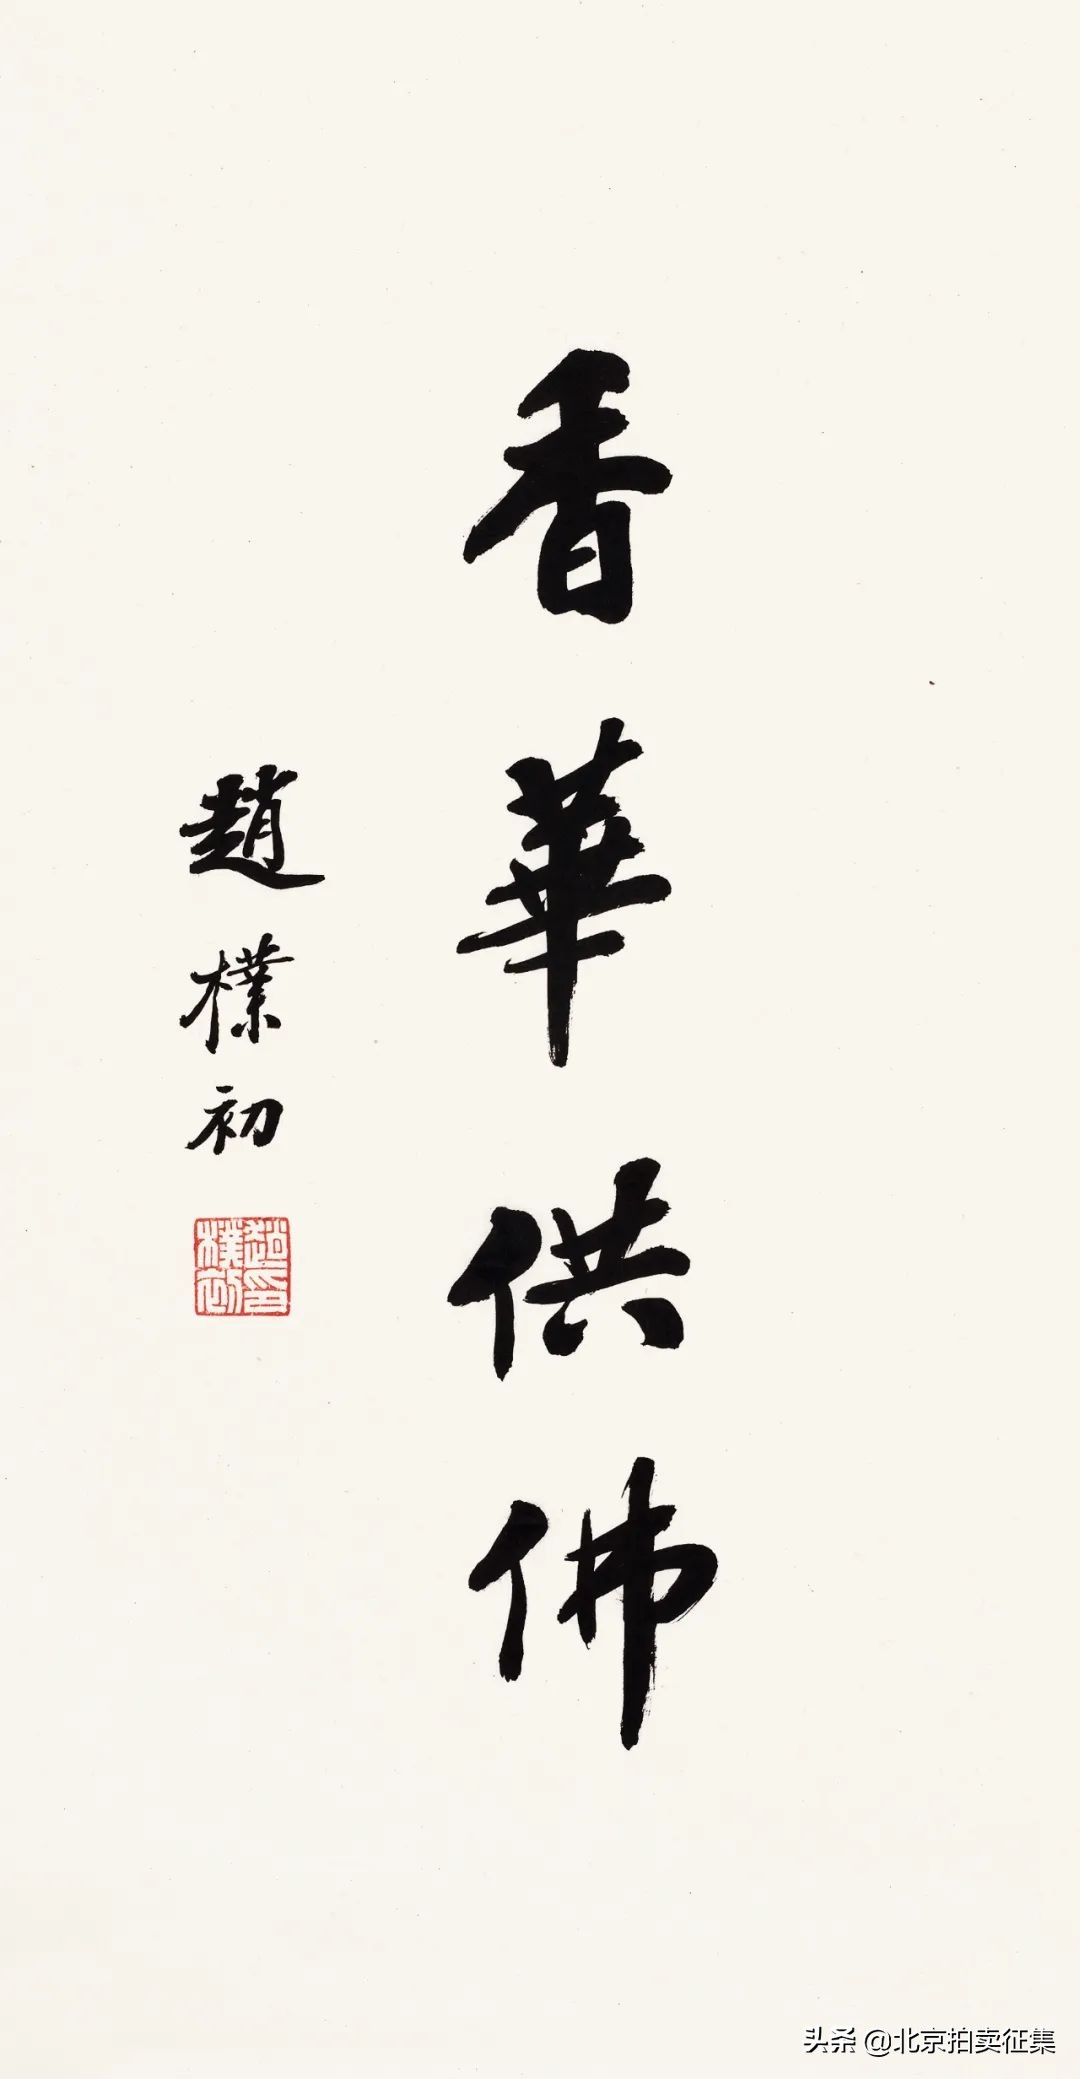 香華供佛
趙樸初
趙樸初印
头条 @北京拍卖征集